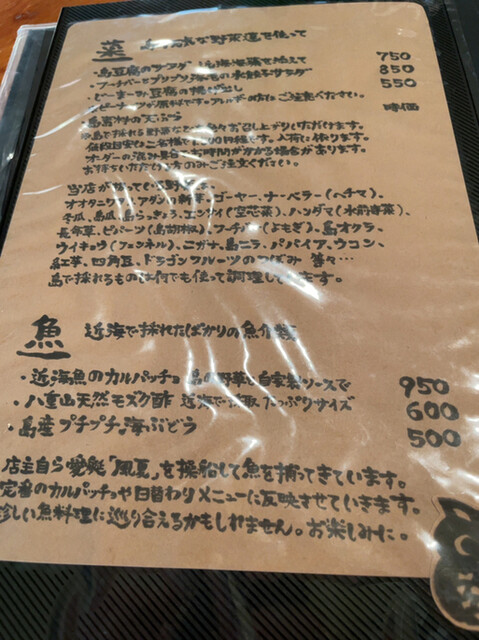 菜 島の元気な野菜達を使って
・島豆腐のサラダ 750
・フーチバーとプリプリ海老の水餃子サラダ 850
・じーまーみ豆腐の揚げ出し 550
ピーナッツが原料です。アレルギーの方はご注意ください。
・島素材の天ぷら 時価
島で採れる野菜などお召し上がりいただけます。
オーダーの混み具合でお時間がかかる場合があります。
お待ちいただける方のみご注文ください。
当店が使っている野菜
オオタニワタリ、アダンの新芽、ゴーヤー、ナーベラー(ヘチマ)、
冬瓜、島瓜、島らっきょう、エンサイ(空芯菜)、ハンダマ(水前寺菜)、
長命草、ピパーツ(島胡椒)、フーチバー(よもぎ)、島オクラ、
ウイキョウ(フェンネル)、ニガナ、島ニラ、パパイア、ウコン、
紅芋、四角豆、ドラゴンフルーツのつぼみ 等々…
島で採れるものは何でも使って調理しています。
魚 近海で採れたばかりの魚介類
・近海魚のカルパッチョ 島の野菜と自家製ソースで 950
・八重山天然モズク酢 近海で採取 たっぷりサイズ 600
・島産プチプチ海ぶどう 500
店主自ら愛艇「風夏」を操船して魚を捕ってきています。
定番のカルパッチョや日替わりメニューに反映させていきます。
珍しい魚料理に巡り合えるかもしれません。お楽しみに。